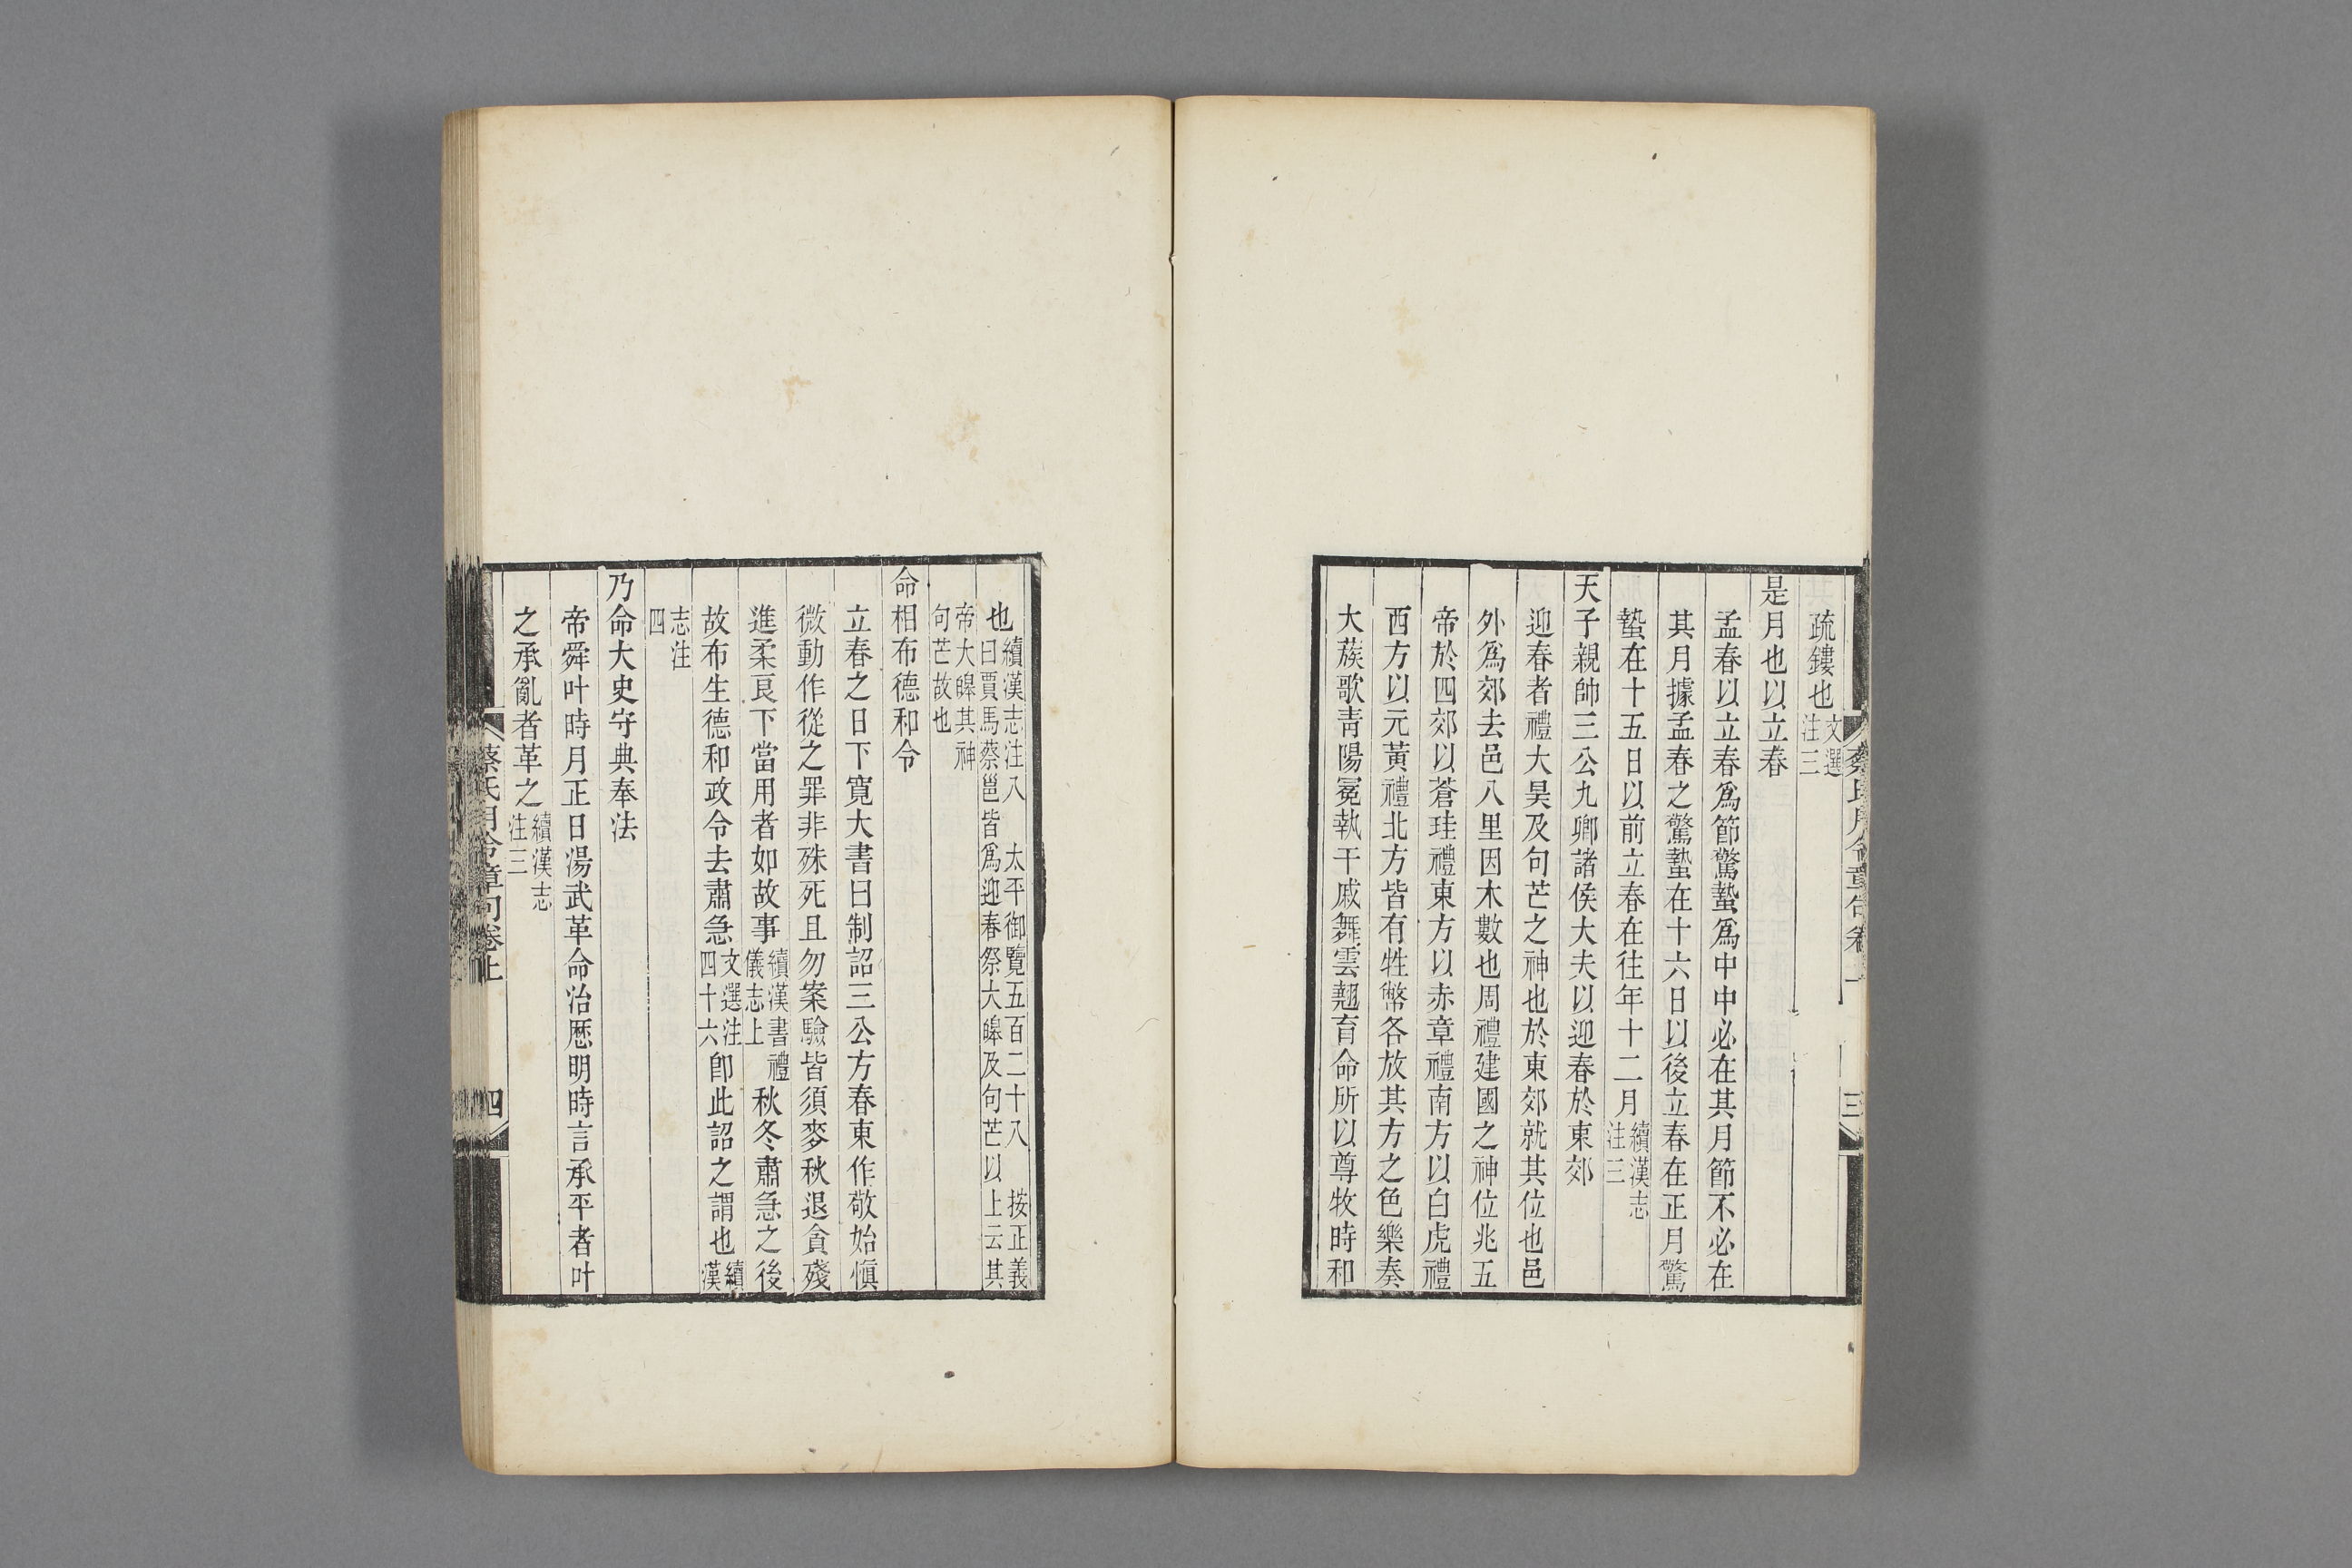 疏鏤也文選注三
是月也以立春
孟春以立春爲節驚蟄爲中中必在其月節不必在
其月據孟春之驚蟄在十六日以後立春在正月驚
蟄在十五日以前立春在往年十二月續漢志注三
天子親帥三公九卿諸侯大夫以迎春於東郊
迎春者禮大昊及句芒之神也於東郊就其位也邑
外爲郊去邑八里因木數也周禮建國之神位兆五
帝於四郊以蒼珪禮東方以赤章禮南方以白虎禮
西方以元黃禮北方皆有牲幣各放其方之色樂奏
大蔟歌青陽冕執干戚舞雲翹育命所以尊牧時和
也續漢志注八　太平御覽五百二十八　按正義曰賈馬蔡邕皆爲迎春祭大皞及句芒以上云其
帝大皞其神句芒故也
命相布德和令
立春之日下寬大書曰制詔三公方春東作敬始愼
微動作從之罪非殊死且勿案驗皆須麥秋退貪殘
進柔良下當用者如故事續漢書禮儀志上秋冬肅急之後
故布生德和政令去肅急文選注四十六卽此詔之謂也續漢
志注四
乃命大史守典奉法
帝舜叶時月正日湯武革命治厯明時言承平者叶
之承亂者革之續漢志注三
蔡氏月令章句卷上
四